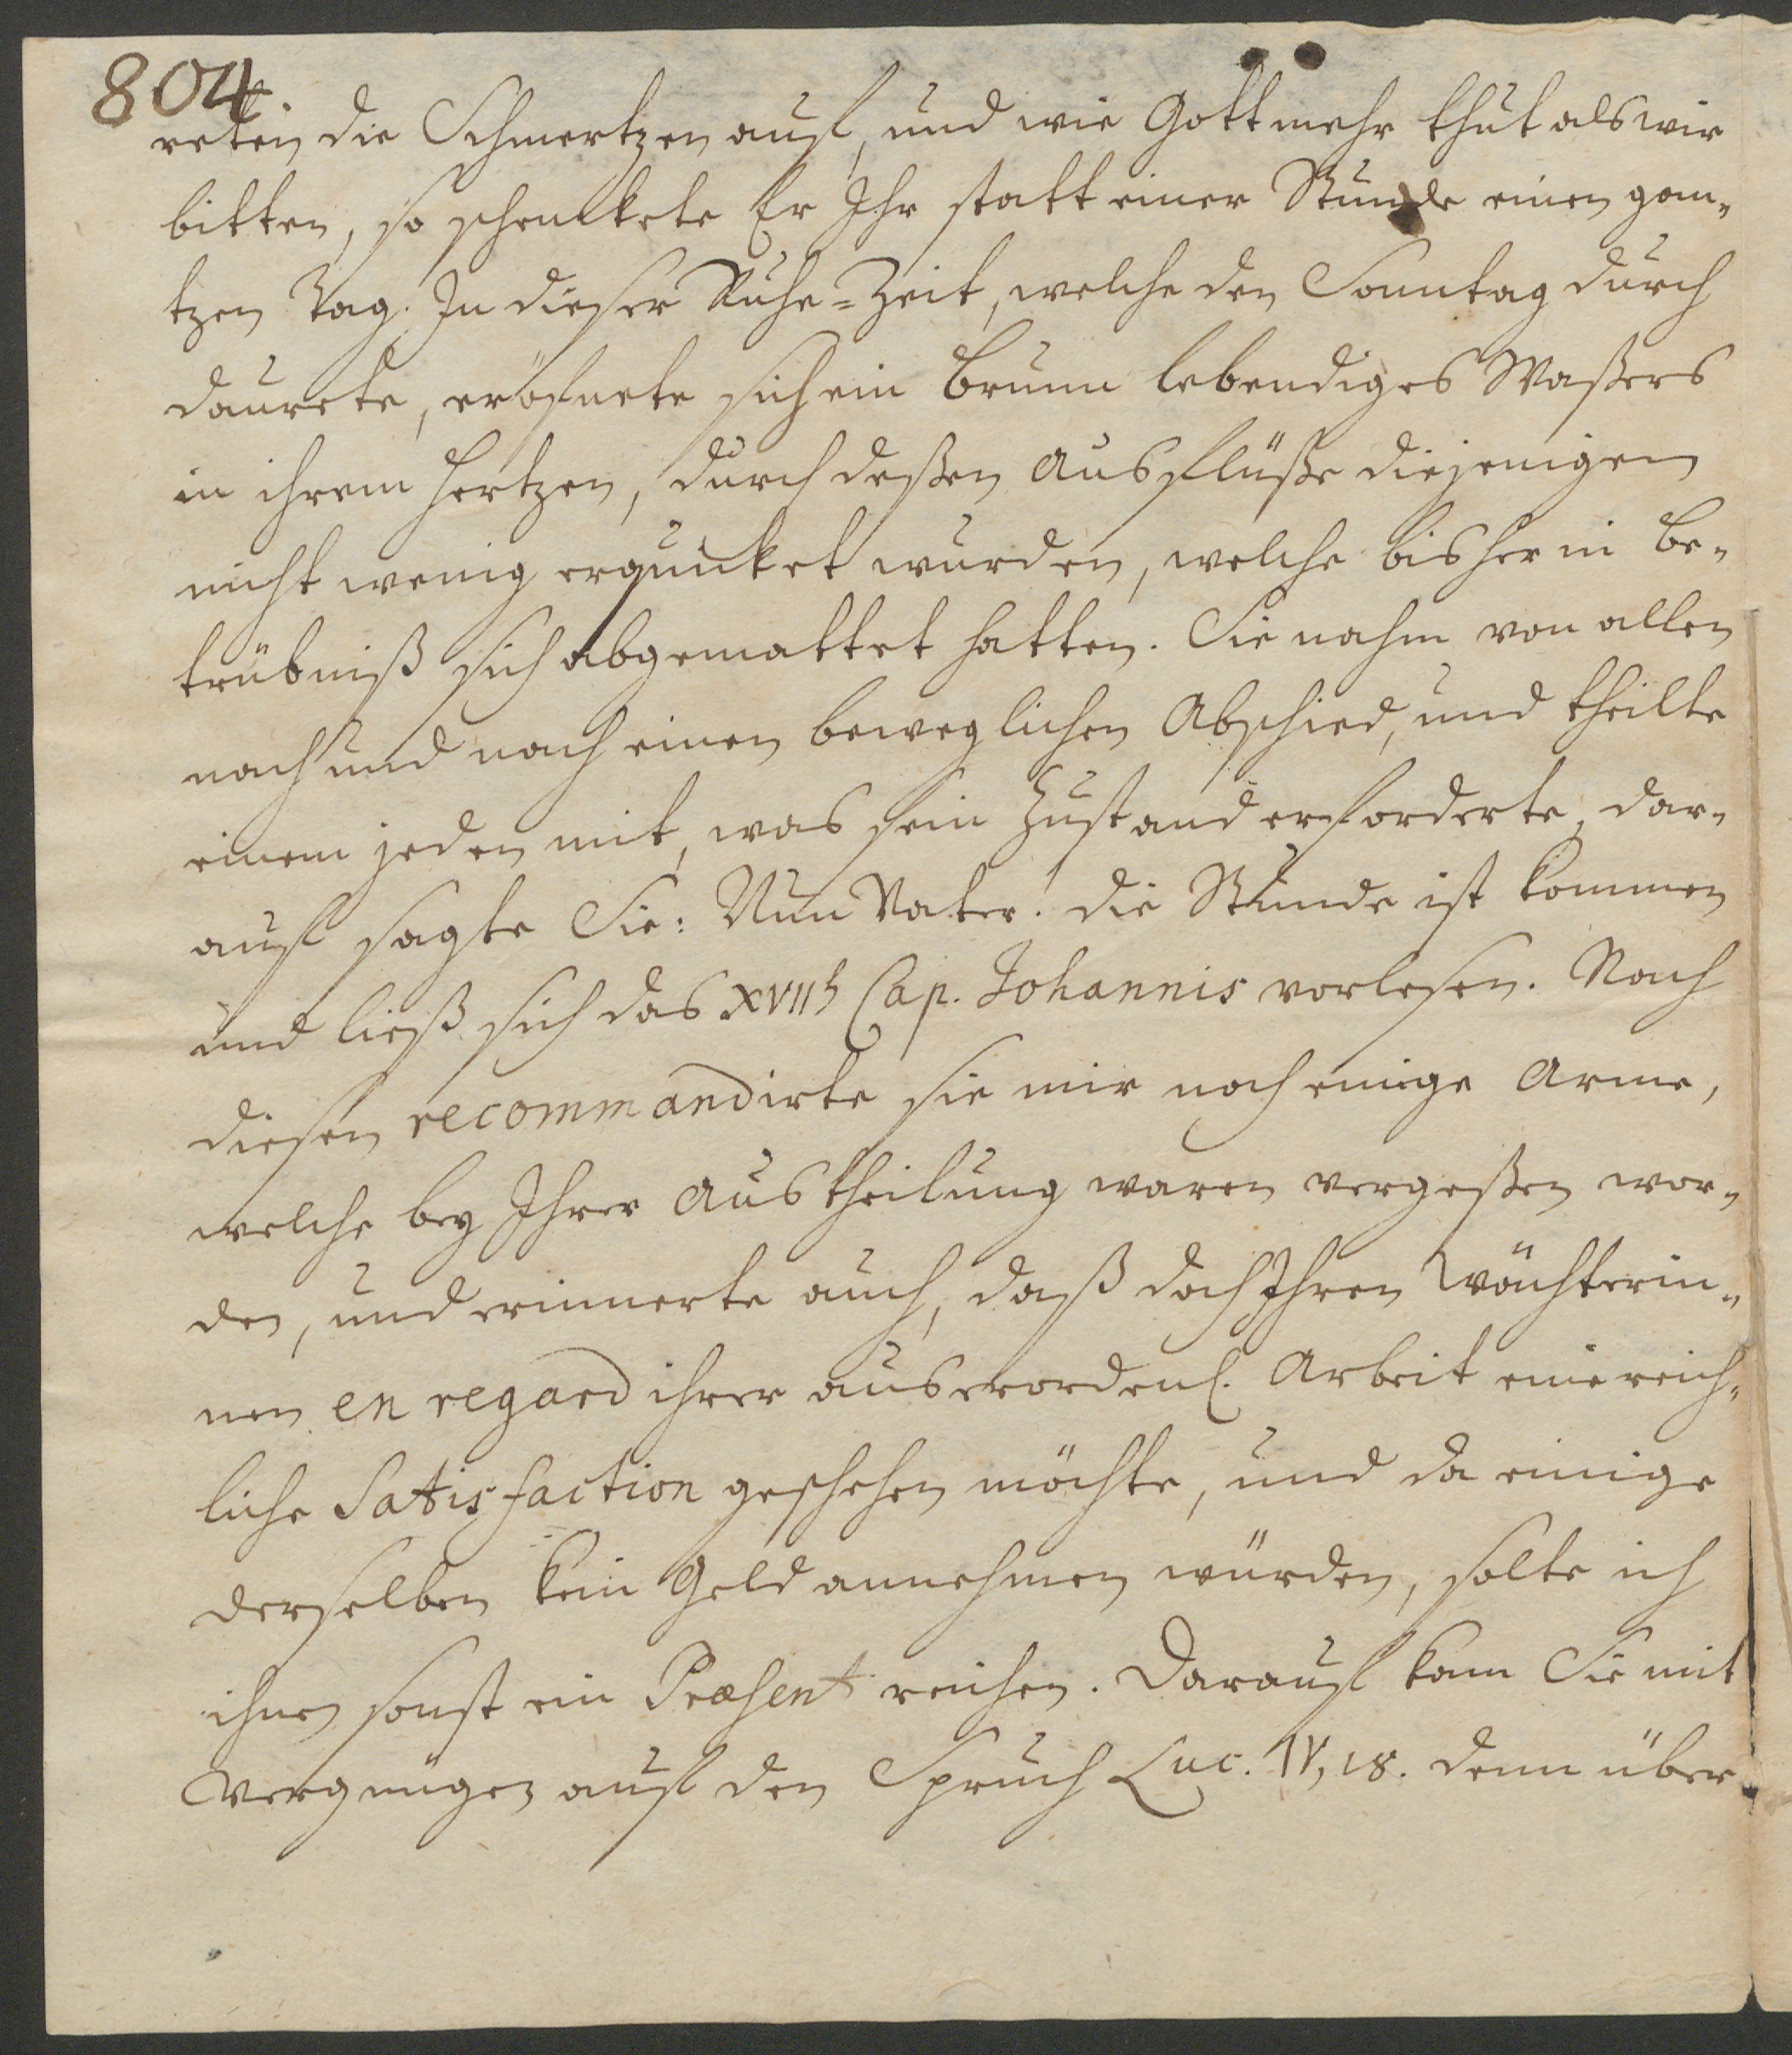 804.
reten die Schmertzen auf, und wie Gott mehr thut als wir
bitten, so schenkete Er Ihr statt einer Stunde einen gan-
tzen Tag. In dieser Ruhe-Zeit, welche den Sonntag durch
daurete, eröfnete sich ein Brunn lebendiges Waßers
in ihrem Hertzen, durch deßen Ausflüße diejenigen
nicht wenig erquicket wurden, welche bisher in Be-
trübniß sich abgemattet hatten. Sie nahm von allen
nach und nach einen beweglichen Abschied, und theilte
einem jeden mit, was sein Zustand erforderte, dar-
auf sagte Sie: Nun Vater! die Stunde ist kommen
und ließ sich das XVIIh Cap. Johannis vorlesen. Nach
diesen recommandirte sie mir noch einige Arme,
welche bey Ihrer Austheilung waren vergeßen wor-
den, und erinnerte auch, daß doch Ihren Wächterin-
nen en regard ihrer auserordenl. Arbeit eine reich-
liche Satisfaction geschehen möchte, und da einige
derselben kein Geld annehmen würden, solte ich
ihnen sonst ein Præsent reichen. Darauf kam Sie mit
Vergnügen auf den Spruch Luc. IV, 18. denn über